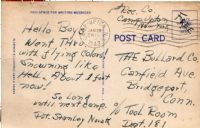 THIS SPACE FOR WRITING MESSAGES
Hello Boys
Went Thro
with flying Colors
Snowning like
Hell. About 1 foot
now!
So Long
until next camp.
Pvt. Stanley Novak
Rec. Co
Camp Upton
New York
Free
POST CARD
The Bullard Co.
Canfield Ave.
Bridgeport,
Conn.
% Tool Room
Dept. 181